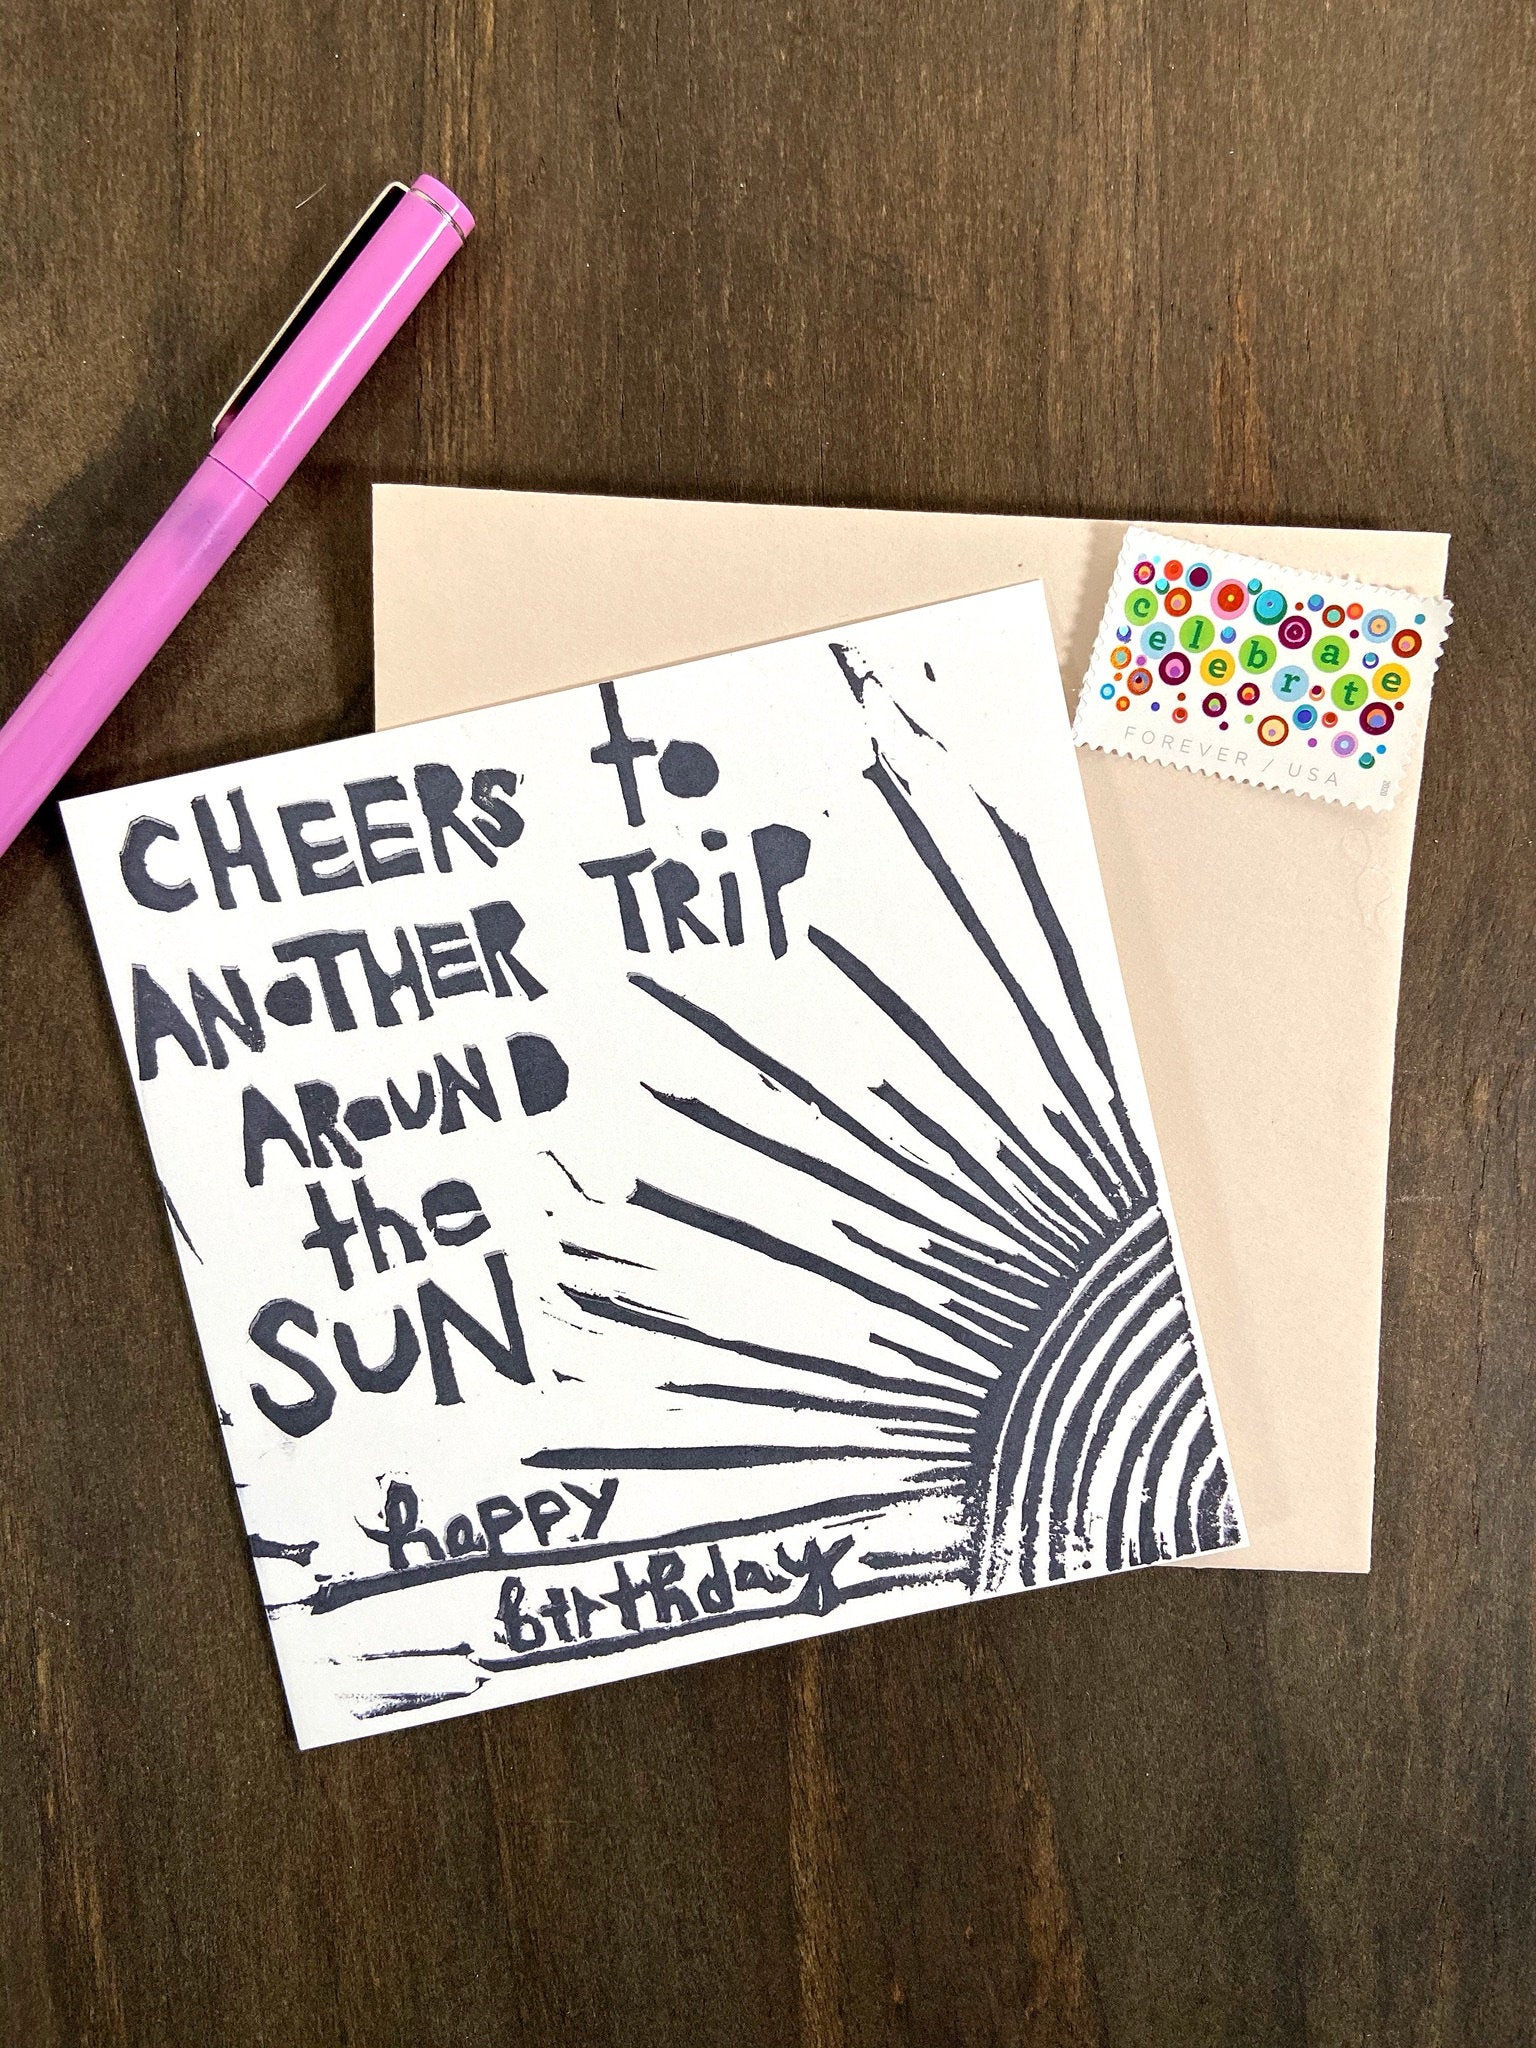 CHEERS to
ANOTHER TRiP
AROUND
the
SUN
happy
birthday
celebrate
FOREVER / USA
2020